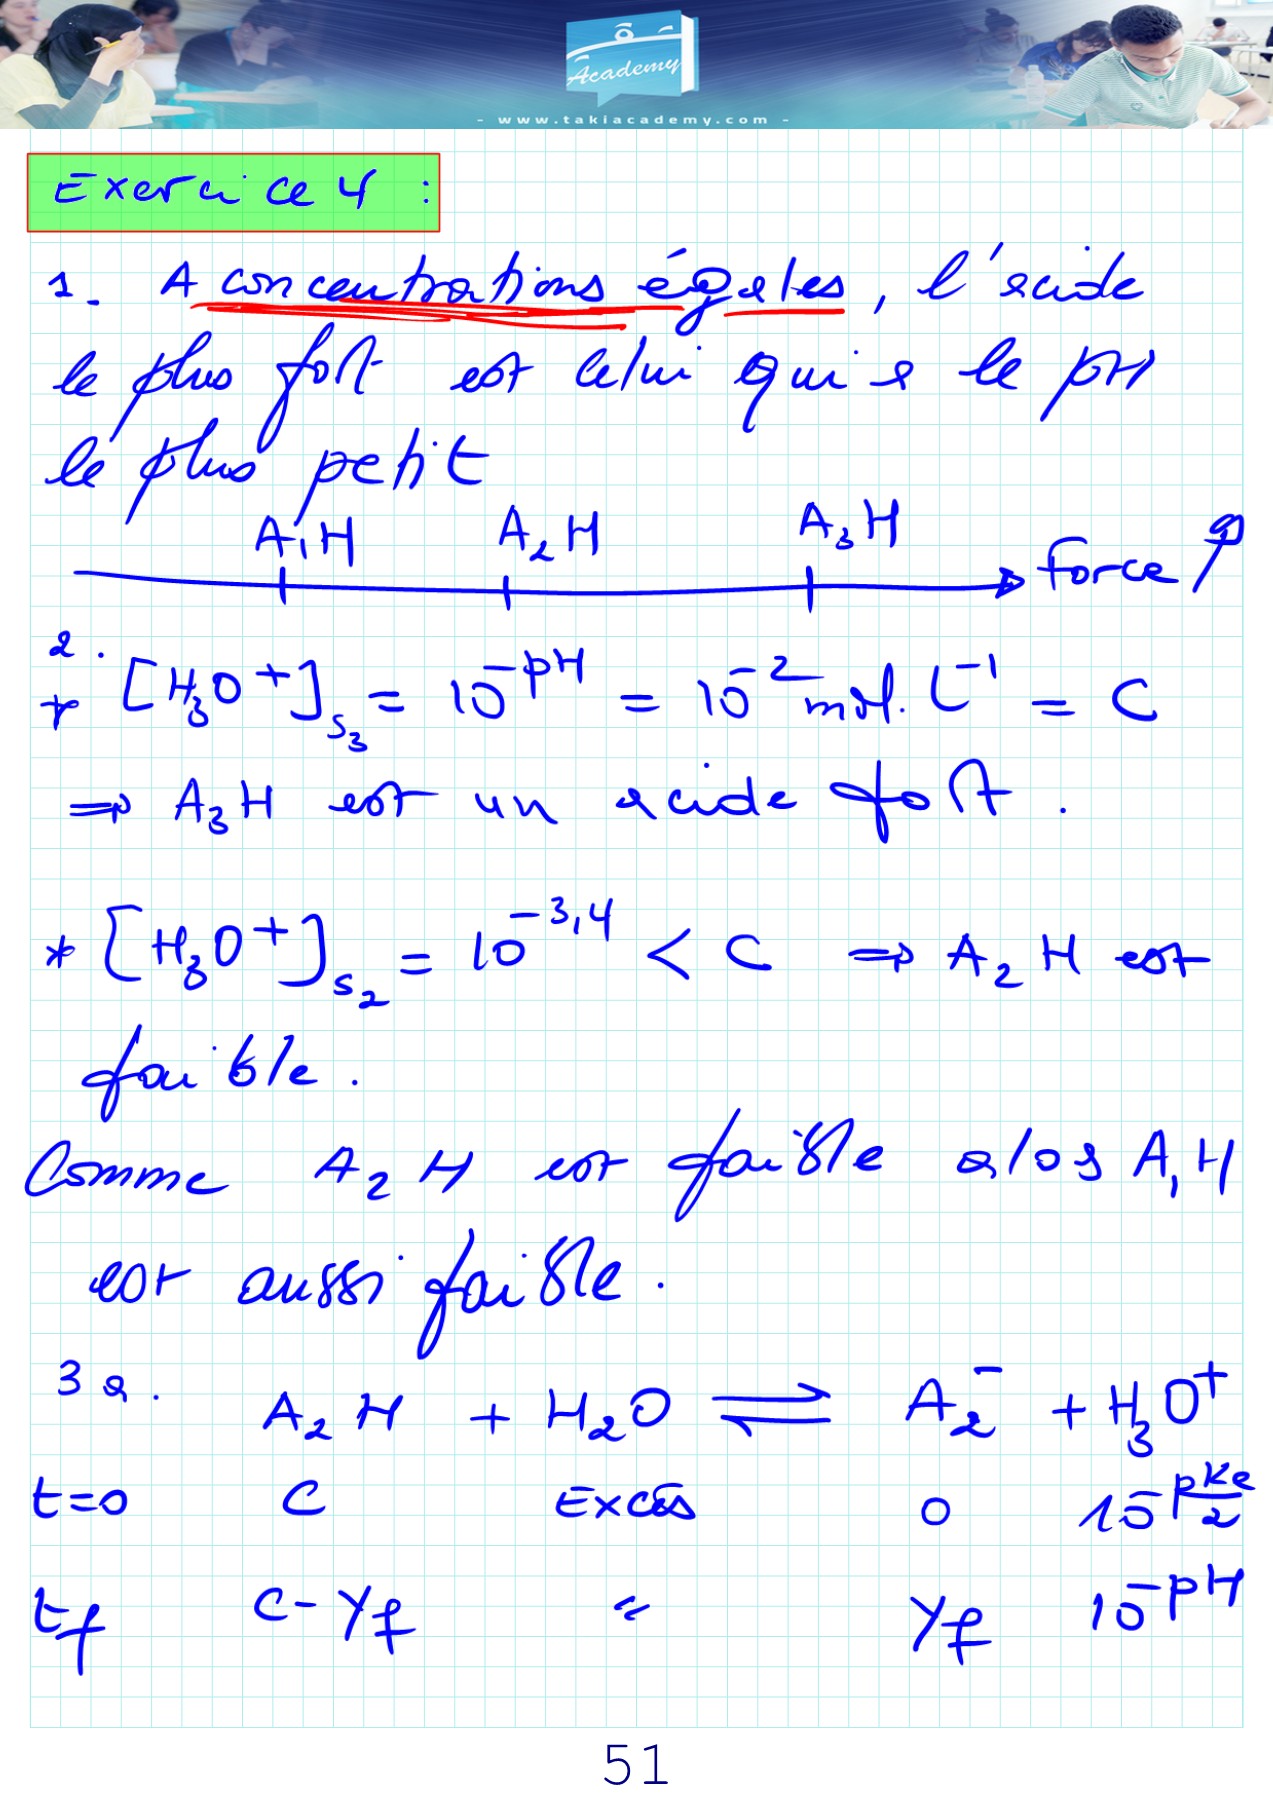 Academy
- www.takiacademy.com -
Exercice 4 :
1. A concentrations égales, l'acide
le plus fort est celui qui a le pH
le plus petit
A₁H A₂H A₃H
Force ↗
2.
* [H₃O⁺]s₃ = 10^-pH = 10^-2 mol.L⁻¹ = C
⇒ A₃H est un acide fort.
* [H₃O⁺]s₂ = 10^-3,4 < C ⇒ A₂H est
faible.
Comme A₂H est faible alos A₁H
est aussi faible.
3 a. A₂H + H₂O ⇌ A₂⁻ + H₃O⁺
t=0 C Excès 0 10^-pKe/2
tf C-yf " yf 10^-pH
51